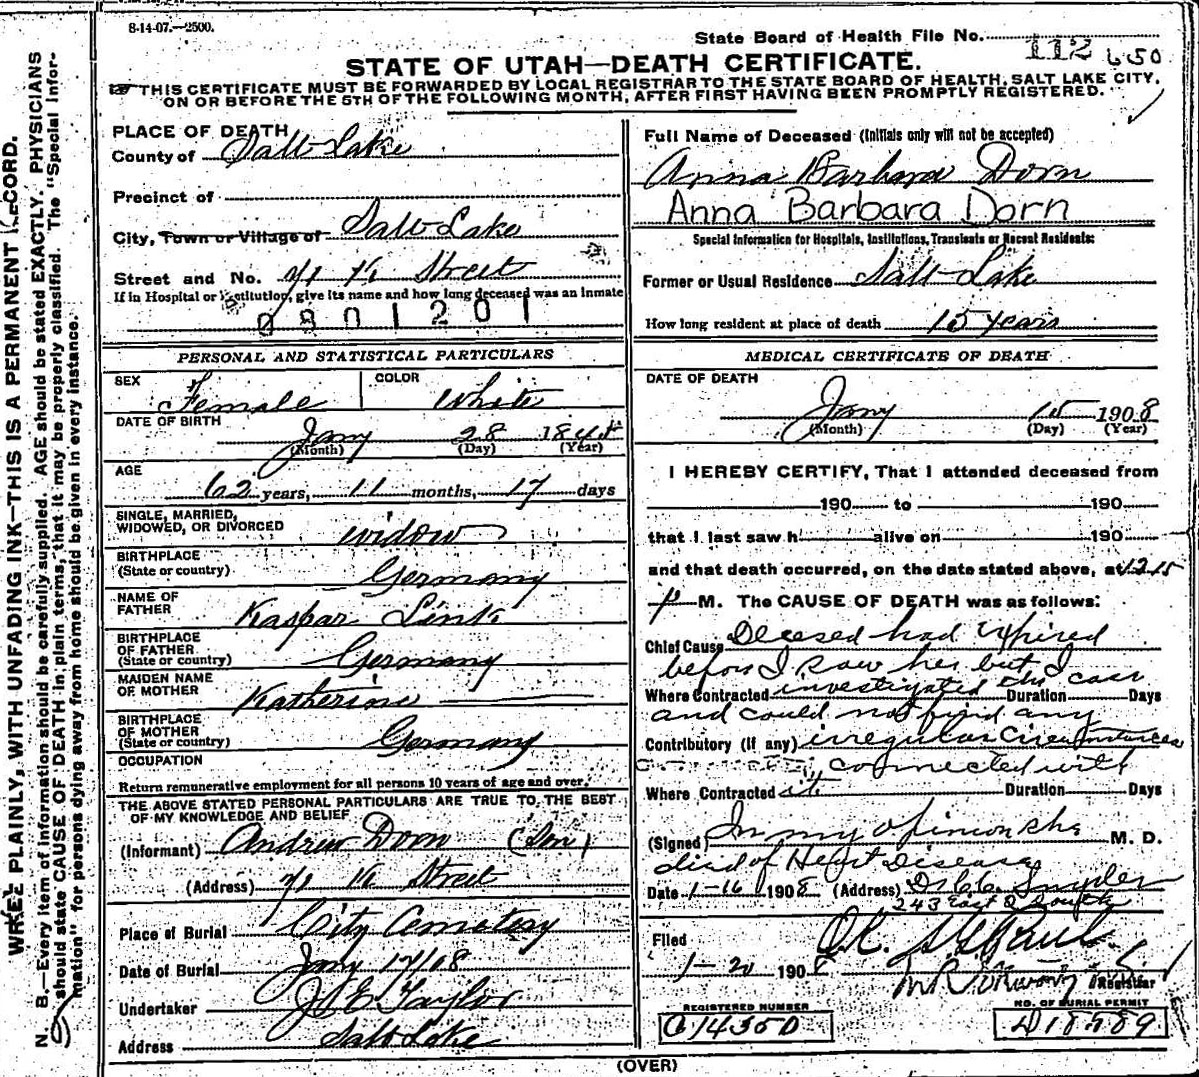 8-14-07.—2500.
State Board of Health File No. 112 650
STATE OF UTAH—DEATH CERTIFICATE.
THIS CERTIFICATE MUST BE FORWARDED BY LOCAL REGISTRAR TO THE STATE BOARD OF HEALTH, SALT LAKE CITY,
ON OR BEFORE THE 5TH OF THE FOLLOWING MONTH, AFTER FIRST HAVING BEEN PROMPTLY REGISTERED.
WRITE PLAINLY, WITH UNFADING INK—THIS IS A PERMANENT RECORD.
N. B.—Every item of information should be carefully supplied. AGE should be stated EXACTLY. PHYSICIANS
should state CAUSE OF DEATH in plain terms, that it may be properly classified. The "Special Infor-
mation" for persons dying away from home should be given in every instance.
PLACE OF DEATH
County of Salt Lake
Precinct of
City, Town or Village of Salt Lake
Street and No. 71 K Street
If in Hospital or Institution, give its name and how long deceased was an inmate
0801201
PERSONAL AND STATISTICAL PARTICULARS
SEX Female COLOR White
DATE OF BIRTH Jany 28 1845
(Month) (Day) (Year)
AGE 62 years, 11 months, 17 days
SINGLE, MARRIED,
WIDOWED, OR DIVORCED widow
BIRTHPLACE
(State or country) Germany
NAME OF
FATHER Kaspar Link
BIRTHPLACE
OF FATHER
(State or country) Germany
MAIDEN NAME
OF MOTHER Katherine
BIRTHPLACE
OF MOTHER
(State or country) Germany
OCCUPATION
Return remunerative employment for all persons 10 years of age and over.
THE ABOVE STATED PERSONAL PARTICULARS ARE TRUE TO THE BEST
OF MY KNOWLEDGE AND BELIEF
(Informant) Andrew Dorn (Son)
(Address) 71 K Street
Place of Burial City Cemetery
Date of Burial Jany 17/08
Undertaker J E Taylor
Address Salt Lake
Full Name of Deceased (Initials only will not be accepted)
Anna Barbara Dorn
Anna Barbara Dorn
Special Information for Hospitals, Institutions, Transients or Recent Residents:
Former or Usual Residence Salt Lake
How long resident at place of death 15 years
MEDICAL CERTIFICATE OF DEATH
DATE OF DEATH
Jany 15 1908
(Month) (Day) (Year)
I HEREBY CERTIFY, That I attended deceased from
190 to 190
that I last saw h alive on 190
and that death occurred, on the date stated above, at 12 15
p M. The CAUSE OF DEATH was as follows:
Chief Cause Deceased had expired
before I saw her but I
Where Contracted investigated the case Duration Days
and could not find any
Contributory (if any) irregular circumstances
connected with
Where Contracted it Duration Days
(Signed) In my opinion she M. D.
died of Heart Disease
Date 1-16 1908 (Address) Dr C. C. Snyder
243 East 2 South
Filed
1-20 1908
Registrar
REGISTERED NUMBER
C 14350
NO. OF BURIAL PERMIT
D 18589
(OVER)